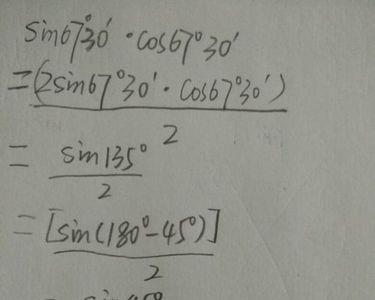 sin67°30′·cos67°30′
=(2sin67°30′·cos67°30′)
2
= sin135°
2
=[sin(180°-45°)]
2
= sin45°